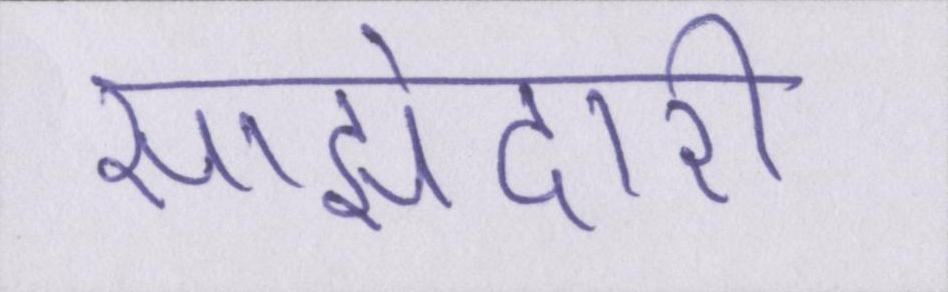 साझेदारी